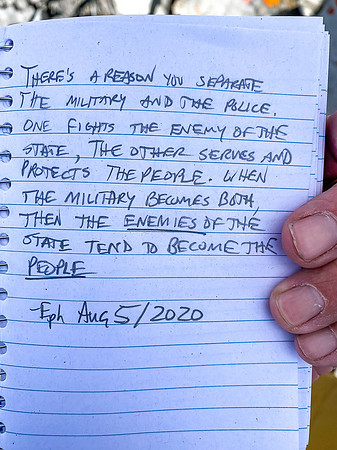 THERE'S A REASON YOU SEPARATE
THE MILITARY AND THE POLICE.
ONE FIGHTS THE ENEMY OF THE
STATE, THE OTHER SERVES AND
PROTECTS THE PEOPLE. WHEN
THE MILITARY BECOMES BOTH,
THEN THE ENEMIES OF THE
STATE TEND TO BECOME THE
PEOPLE
-Eph Aug 5/2020